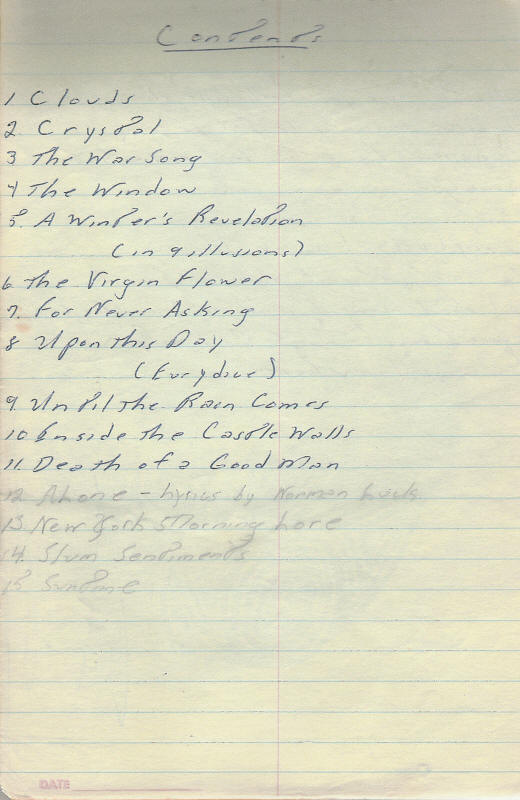 Contents
1 Clouds
2. Crystal
3 The War Song
4 The Window
5. A Winter's Revelation
(in 9 illusions)
6 The Virgin Flower
7. For Never Asking
8 Upon This Day
(Eurydice)
9. Until The Rain Comes
10 Inside the Castle Walls
11. Death of a Good Man
12 Alone - Lyrics by Norman
13 New York Morning Lore
14. Slum Sentiments
15
DATE